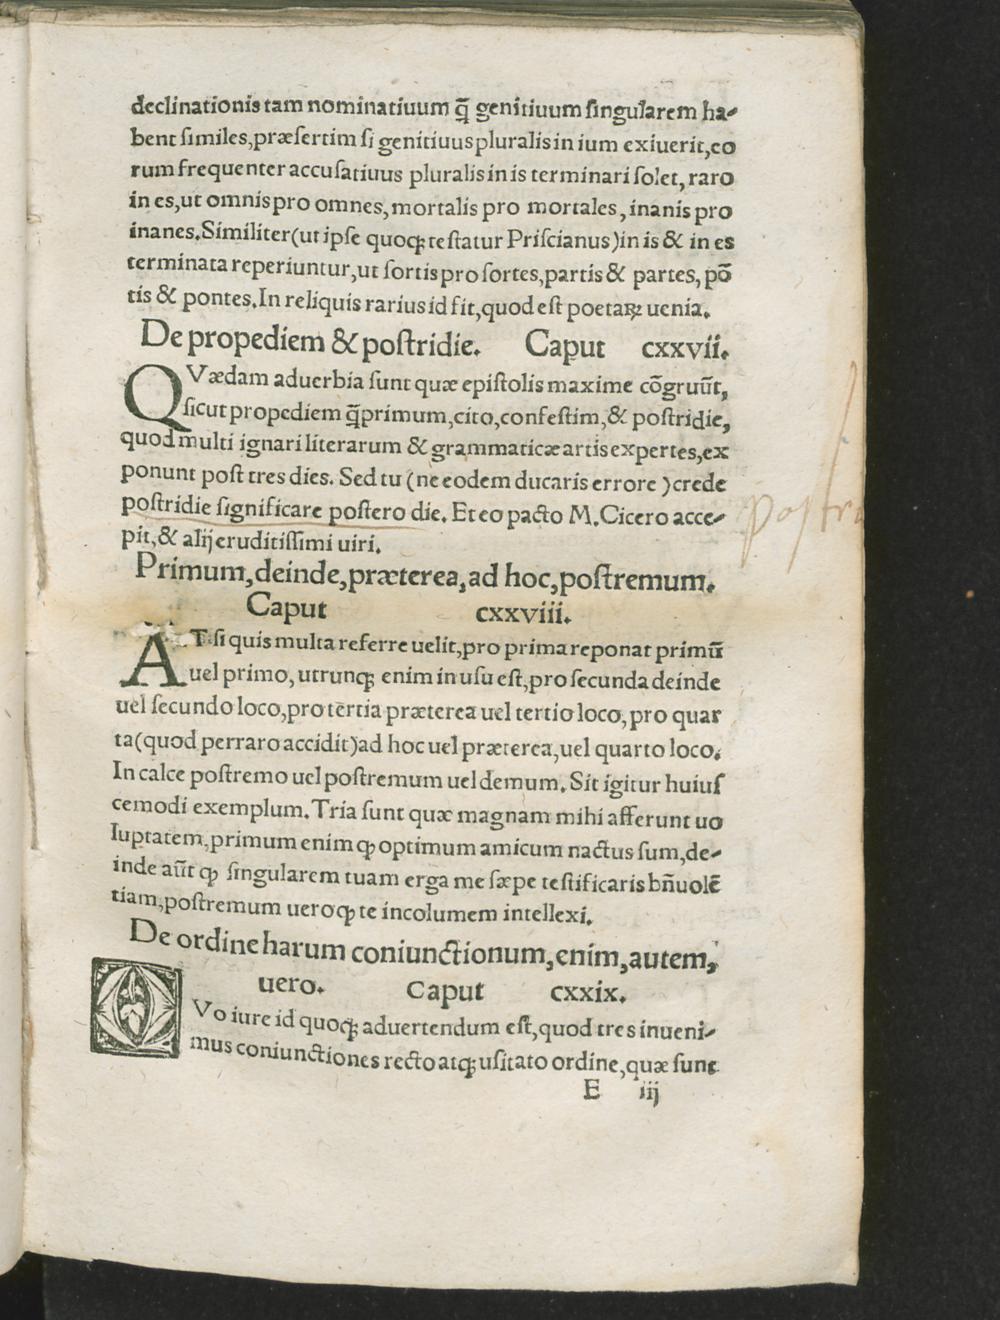 declinationis tam nominatiuum q̄ genitiuum singularem ha-
bent similes, præsertim si genitiuus pluralis in ium exiuerit, eo
rum frequenter accusatiuus pluralis in is terminari solet, raro
in es, ut omnis pro omnes, mortalis pro mortales, inanis pro
inanes. Similiter (ut ipse quoqꝫ testatur Priscianus) in is & in es
terminata reperiuntur, ut sortis pro sortes, partis & partes, pō
tis & pontes. In reliquis rarius id fit, quod est poetaꝝ uenia.
De propediem & postridie. Caput cxxvii.
QVædam aduerbia sunt quæ epistolis maxime cōgruūt,
sicut propediem q̄primum, cito, confestim, & postridie,
quod multi ignari literarum & grammaticæ artis expertes, ex
ponunt post tres dies. Sed tu (ne eodem ducaris errore) crede
postridie significare postero die. Et eo pacto M. Cicero acce-
pit, & alij eruditissimi uiri.
postri
Primum, deinde, præterea, ad hoc, postremum.
Caput cxxviii.
AT si quis multa referre uelit, pro prima reponat primū
uel primo, utrunqꝫ enim in usu est, pro secunda deinde
uel secundo loco, pro tertia præterea uel tertio loco, pro quar
ta (quod perraro accidit) ad hoc uel præterea, uel quarto loco.
In calce postremo uel postremum uel demum. Sit igitur huius
cemodi exemplum. Tria sunt quæ magnam mihi afferunt uo
luptatem, primum enim ꝙ optimum amicum nactus sum, de-
inde aūt ꝙ singularem tuam erga me sæpe testificaris bñuolē
tiam, postremum uero ꝙ te incolumem intellexi.
De ordine harum coniunctionum, enim, autem,
uero. Caput cxxix.
QVo iure id quoqꝫ aduertendum est, quod tres inueni-
mus coniunctiones recto atqꝫ usitato ordine, quæ sunt
E iij